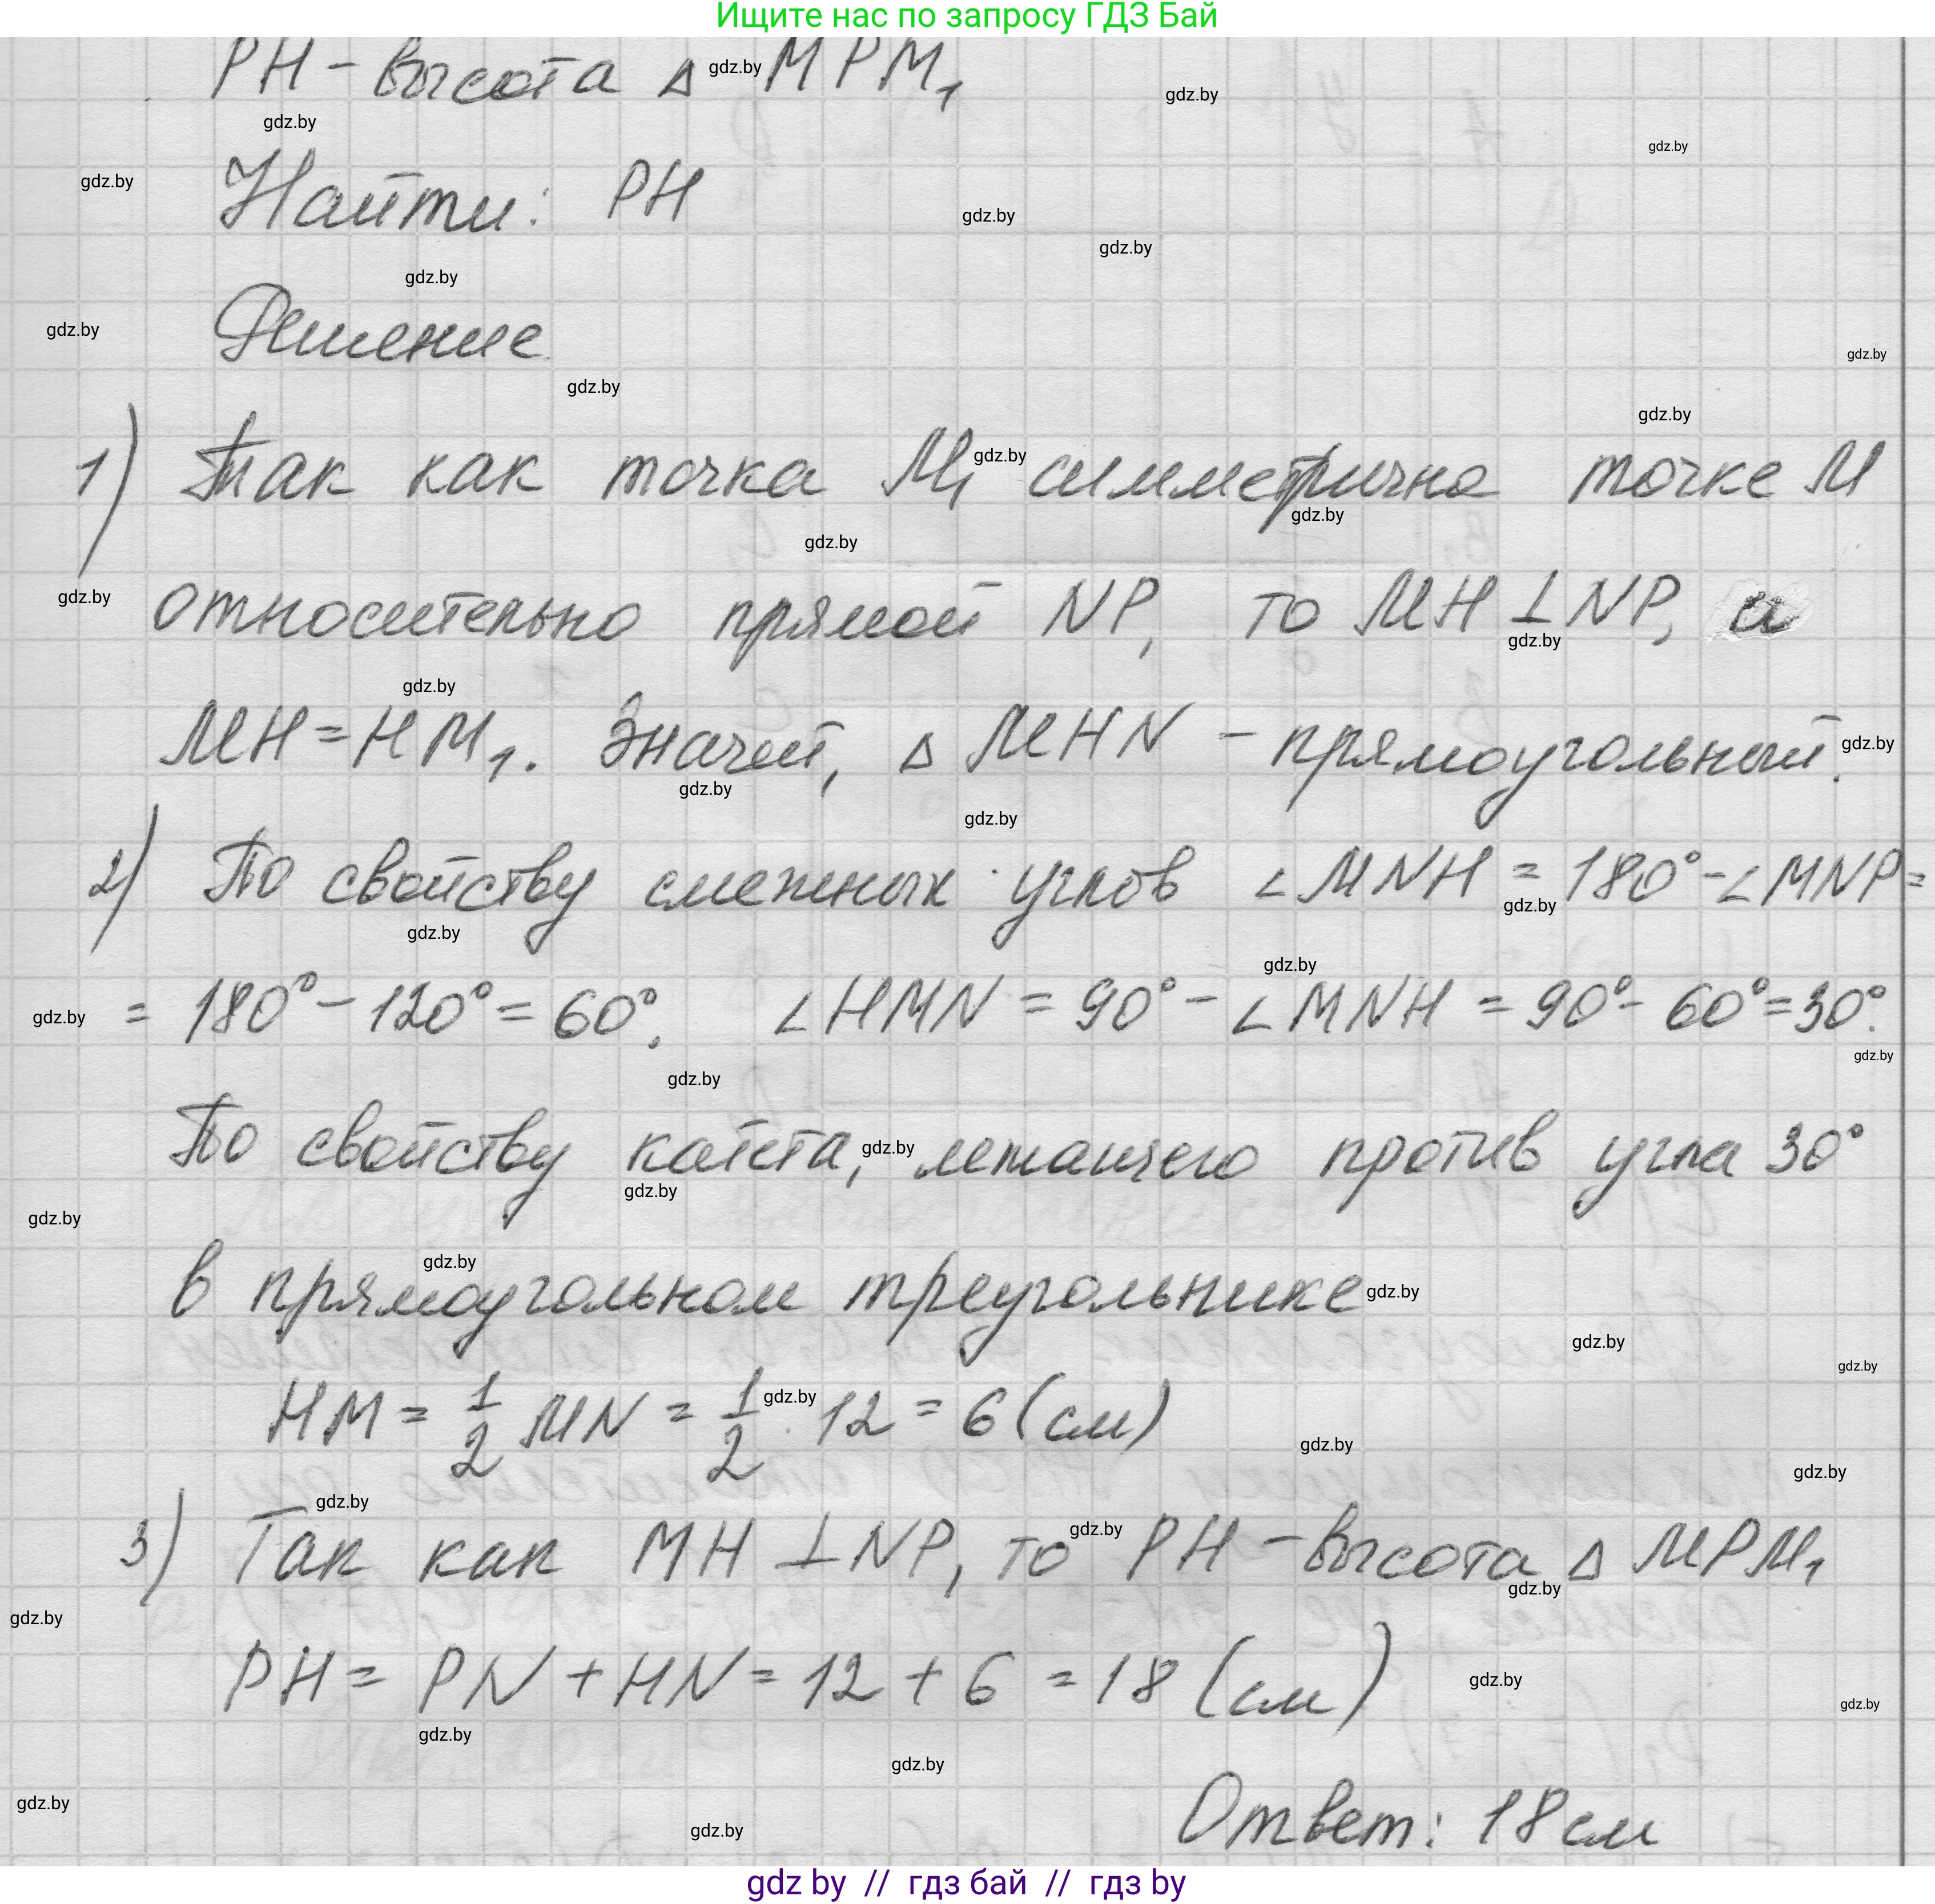 Ищите нас по запросу ГДЗ Бай
PH - высота Δ MPM₁
Найти: PH
Решение
1) Так как точка M₁ симметрична точке M
относительно прямой NP, то MH ⊥ NP, а
MH = HM₁. Значит, Δ MHN - прямоугольный.
2) По свойству смежных углов ∠MNH = 180° - ∠MNP =
= 180° - 120° = 60°. ∠HMN = 90° - ∠MNH = 90° - 60° = 30°.
По свойству катета, лежащего против угла 30°
в прямоугольном треугольнике
HM = 1/2 MN = 1/2 · 12 = 6 (см)
3) Так как MH ⊥ NP, то PH - высота Δ MPM₁
PH = PN + HN = 12 + 6 = 18 (см)
Ответ: 18 см
gdz by // гдз бай // гдз by